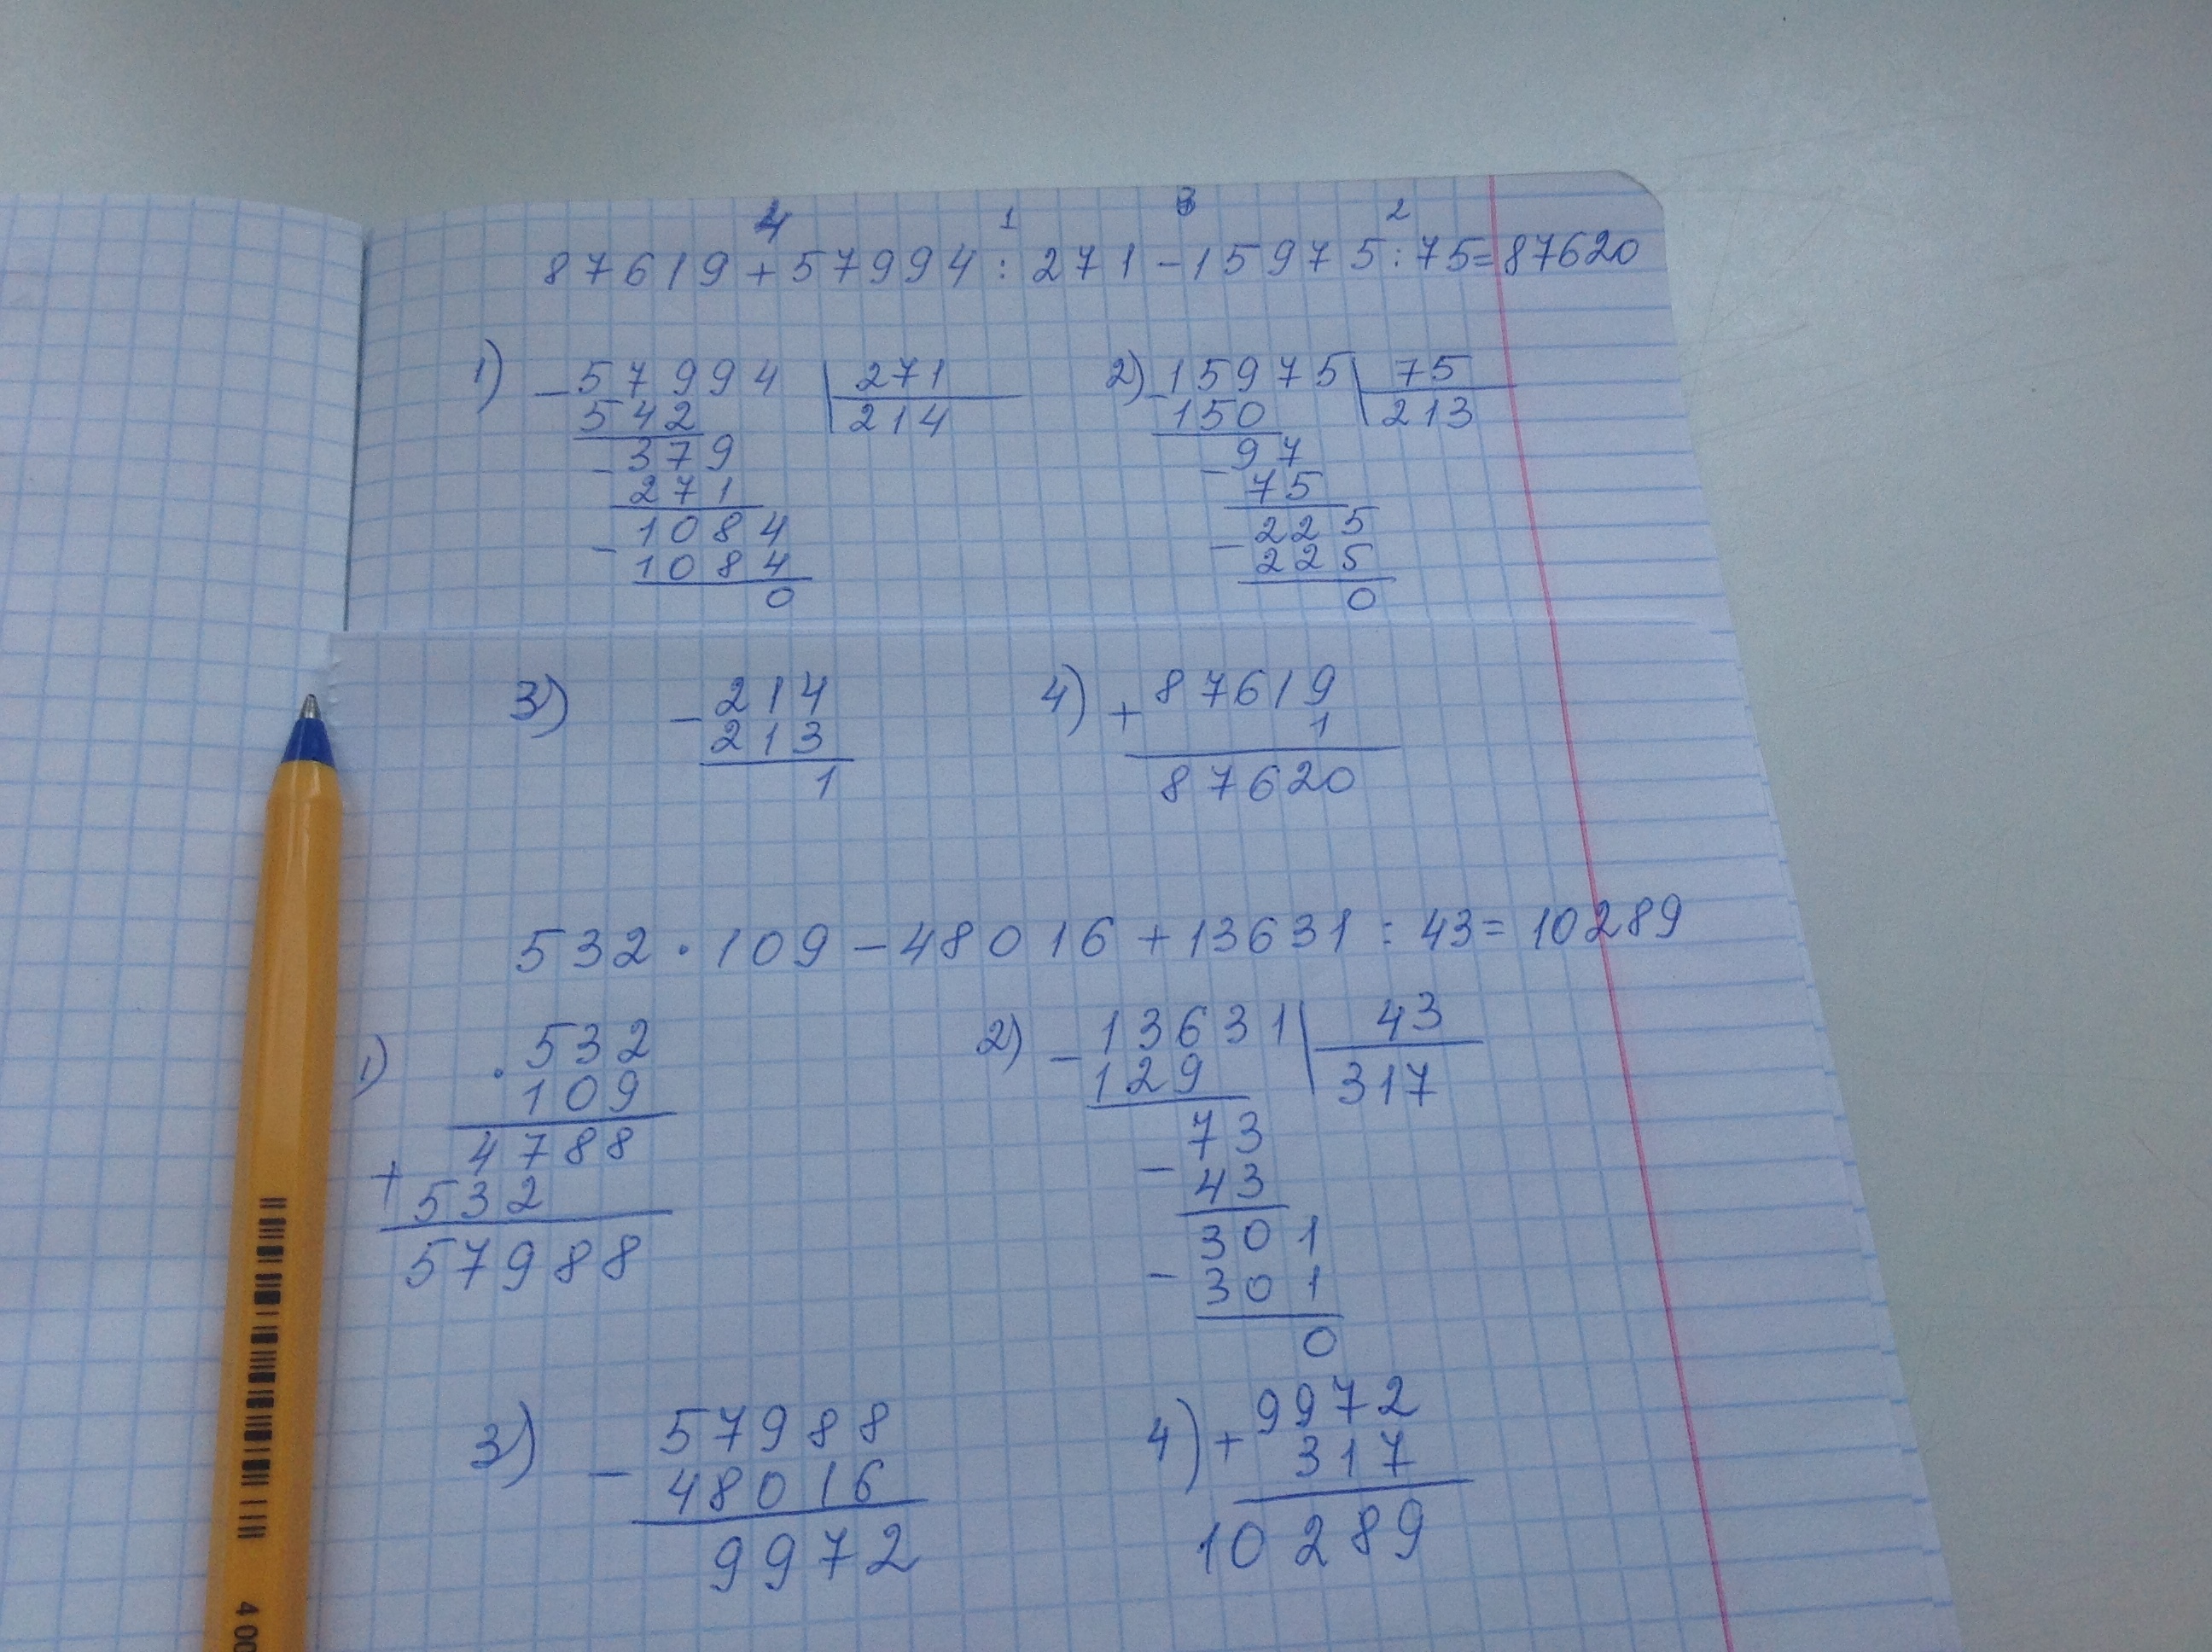 4 1 3 2
87619+57994:271-15975:75=87620
1) -57994 271 2) -15975 75
542 214 150 213
-379 -97
271 75
-1084 -225
1084 225
0 0
3) -214 4) +87619
213 1
1 87620
532·109-48016+13631:43=10289
1) ·532 2) -13631 43
109 129 317
4788 -73
+532 43
57988 301
-301
0
3) -57988 4) +9972
48016 317
9972 10289
4 00